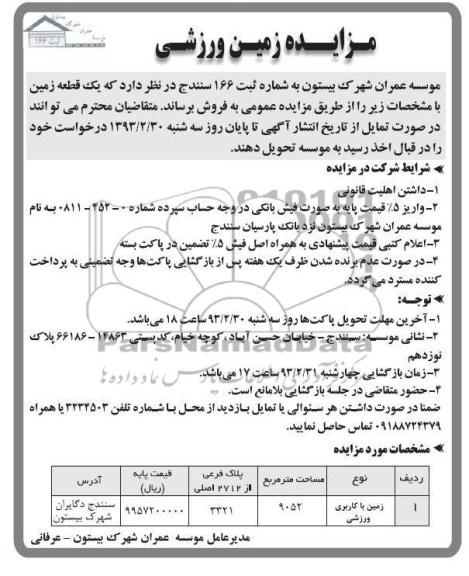 بیستون
عمران شهرک
موسسه
ثبت ۱۶۶
مزایده زمین ورزشی
موسسه عمران شهرک بیستون به شماره ثبت ۱۶۶ سنندج در نظر دارد که یک قطعه زمین
با مشخصات زیر را از طریق مزایده عمومی به فروش برساند. متقاضیان محترم می توانند
در صورت تمایل از تاریخ انتشار آگهی تا پایان روز سه شنبه ۱۳۹۳/۲/۳۰ درخواست خود
را در قبال اخذ رسید به موسسه تحویل دهند.
شرایط شرکت در مزایده
۱-داشتن اهلیت قانونی
۲- واریز ۵٪ قیمت پایه به صورت فیش بانکی در وجه حساب سپرده شماره ۰-۴۵۲-۰۸۱۱ به نام
موسسه عمران شهرک بیستون نزد بانک پارسیان سنندج
۳-اعلام کتبی قیمت پیشنهادی به همراه اصل فیش ۵٪ تضمین در پاکت بسته
۴-در صورت عدم برنده شدن ظرف یک هفته پس از بازگشایی پاکت‌ها وجه تضمینی به پرداخت
کننده مسترد می‌گردد.
توجه:
۱- آخرین مهلت تحویل پاکت‌ها روز سه شنبه ۹۳/۲/۳۰ ساعت ۱۸ می‌باشد.
۲-نشانی موسسه: سنندج - خیابان حسن آباد، کوچه خیام، کدپستی ۱۴۸۶۳-۶۶۱۸۶ پلاک
نوزدهم
۳-زمان بازگشایی چهارشنبه ۹۳/۲/۳۱ ساعت ۱۷ می‌باشد.
۴-حضور متقاضی در جلسه بازگشایی بلامانع است.
ضمنا در صورت داشتن هر سئوالی یا تمایل بازدید از محل با شماره تلفن ۳۲۳۴۵۰۳ یا همراه
۰۹۱۸۸۷۲۴۳۷۹ تماس حاصل نمایید.
مشخصات مورد مزایده
ردیف نوع مساحت مترمربع پلاک فرعی از ۲۷۱۲ اصلی قیمت پایه (ریال) آدرس
۱ زمین با کاربری ورزشی ۹۰۵۲ ۳۳۲۱ ۹۹۵۷۲۰۰۰۰۰ سنندج دگایران شهرک بیستون
مدیرعامل موسسه عمران شهرک بیستون - عرفانی
ParsNamadData